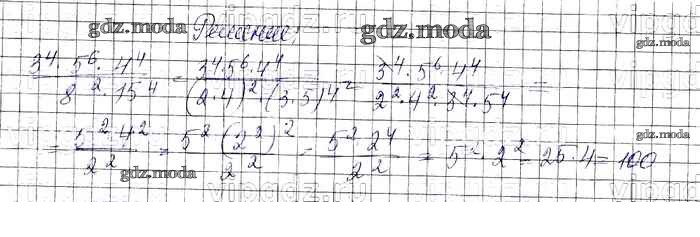 vipgdz.ru
gdz.moda Решение; gdz.moda gdz.moda
3⁴·5⁶·4⁴ / 8²·15⁴ = 3⁴·5⁶·4⁴ / (2·4)²·(3·5)⁴ = 3⁴·5⁶·4⁴ / 2²·4²·3⁴·5⁴ =
= 5²·4² / 2² = 5²(2²)² / 2² = 5²·2⁴ / 2² = 5²·2² = 25·4 = 100
gdz.moda gdz.moda
vipgdz.ru